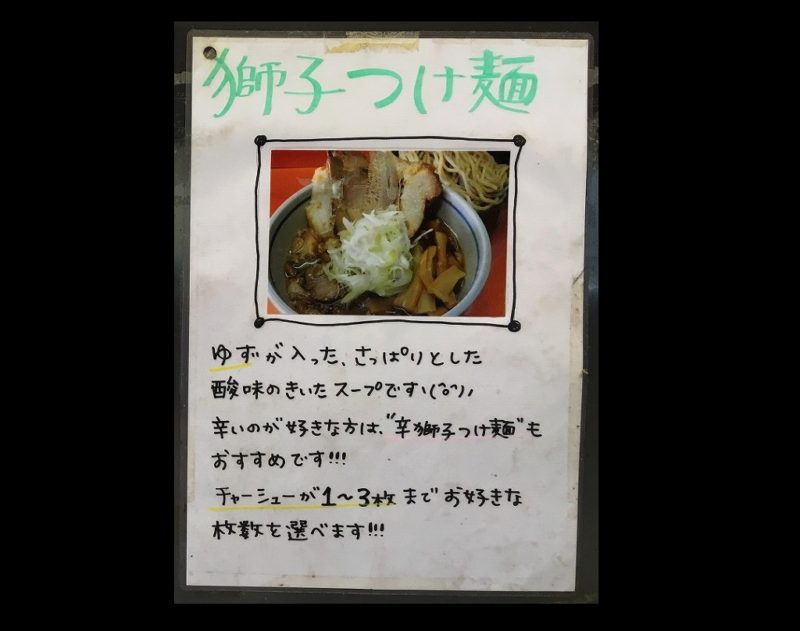 獅子つけ麺
ゆずが入った、さっぱりとした
酸味のきいたスープですヽ(^o^)ノ
辛いのが好きな方は、"辛獅子つけ麺"も
おすすめです!!!
チャーシューが1〜3枚までお好きな
枚数を選べます!!!